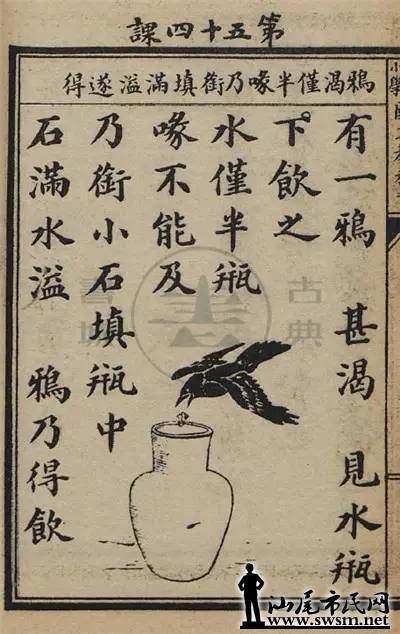 第五十四課
鴉渴僅半喙乃銜填滿溢遂得
有一鴉 甚渴 見水瓶
下飲之
水僅半瓶
喙不能及
乃銜小石填瓶中
石滿水溢 鴉乃得飲
古典
汕尾市民网
www.swsm.net